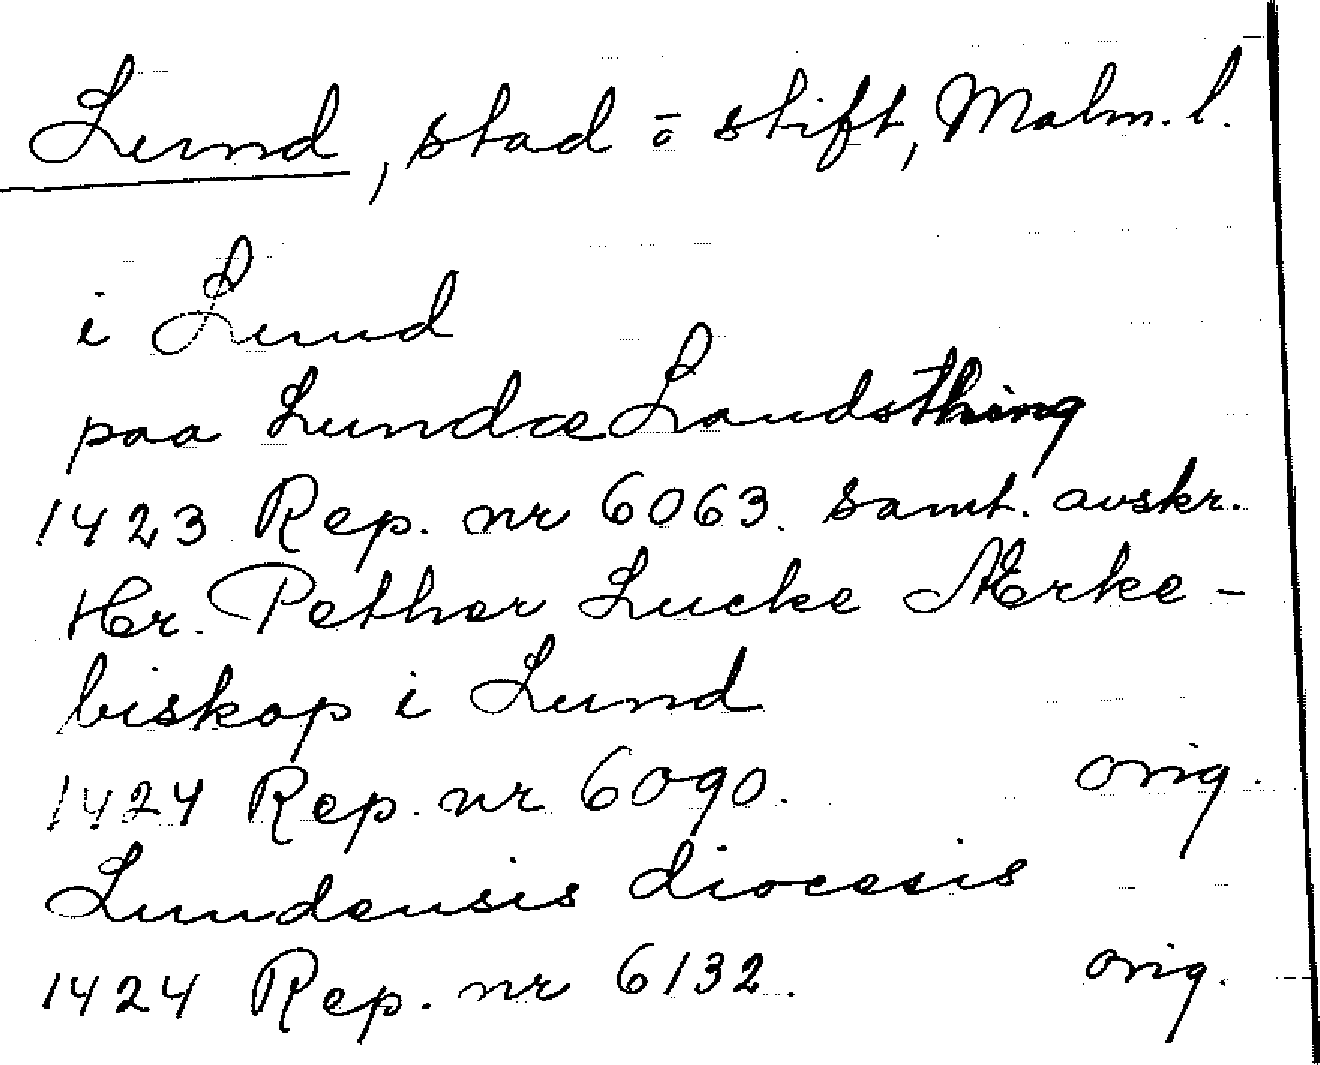 Lund, stad o stift, Malm. l.
i Lund
paa Lundæ Landsthing
1423 Rep. nr 6063. samt. avskr.
Hr. Pether Lucke Ærke-
biskop i Lund
1424 Rep. nr 6090. orig.
Lundensis diocesis
1424 Rep. nr 6132. orig.